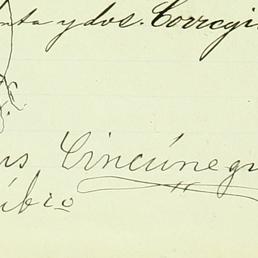 nta y dos. Corregi
us Cincúnegu
úbro